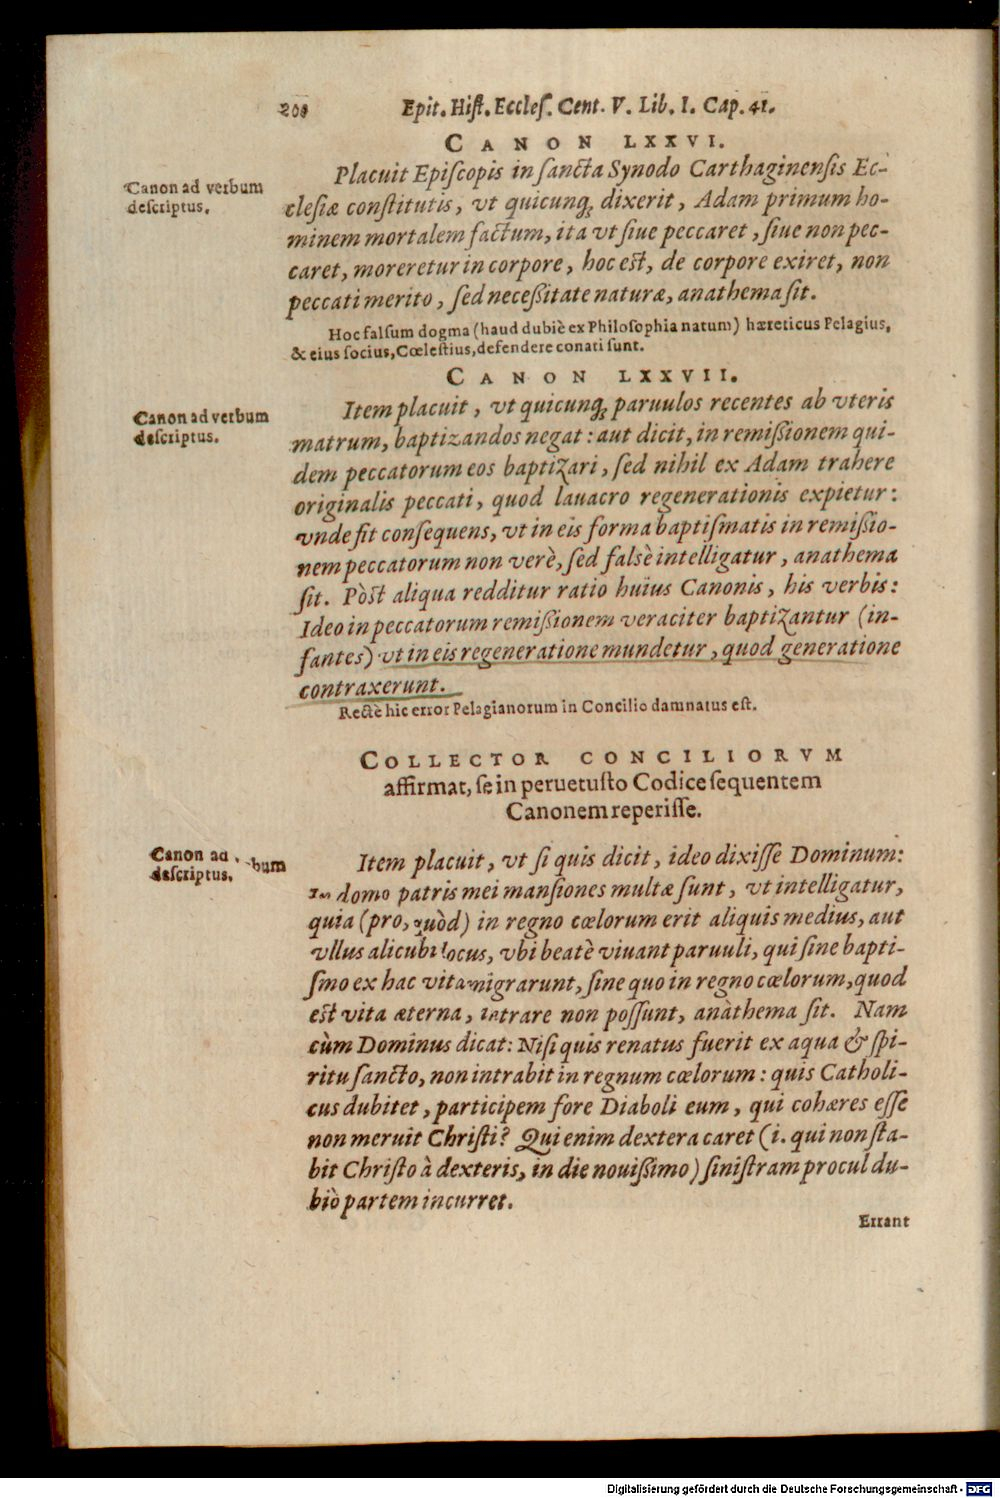 208 Epit. Hiſt. Eccleſ. Cent. V. Lib. I. Cap. 41.
CANON LXXVI.
Canon ad verbum
deſcriptus.
Placuit Epiſcopis in ſancta Synodo Carthaginenſis Ec-
cleſiæ conſtitutis, vt quicunq; dixerit, Adam primum ho-
minem mortalem factum, ita vt ſiue peccaret, ſiue non pec-
caret, moreretur in corpore, hoc eſt, de corpore exiret, non
peccati merito, ſed neceßitate naturæ, anathema ſit.
Hoc falſum dogma (haud dubiè ex Philoſophia natum) hæreticus Pelagius,
& eius ſocius, Cœleſtius, defendere conati ſunt.
CANON LXXVII.
Canon ad verbum
deſcriptus.
Item placuit, vt quicunq; paruulos recentes ab vteris
matrum, baptizandos negat: aut dicit, in remißionem qui-
dem peccatorum eos baptizari, ſed nihil ex Adam trahere
originalis peccati, quod lauacro regenerationis expietur:
vnde fit conſequens, vt in eis forma baptiſmatis in remißio-
nem peccatorum non verè, ſed falsè intelligatur, anathema
ſit. Pòſt aliqua redditur ratio huius Canonis, his verbis:
Ideo in peccatorum remißionem veraciter baptizantur (in-
fantes) vt in eis regeneratione mundetur, quod generatione
contraxerunt.
Rectè hic error Pelagianorum in Concilio damnatus eſt.
COLLECTOR CONCILIORVM
affirmat, ſe in peruetuſto Codice ſequentem
Canonem reperiſſe.
Canon ad bum
deſcriptus.
Item placuit, vt ſi quis dicit, ideo dixiſſe Dominum:
In domo patris mei manſiones multæ ſunt, vt intelligatur,
quia (pro, quòd) in regno cœlorum erit aliquis medius, aut
vllus alicubi locus, vbi beatè viuant paruuli, qui ſine bapti-
ſmo ex hac vita migrarunt, ſine quo in regno cœlorum, quod
eſt vita æterna, intrare non poſſunt, anàthema ſit. Nam
cùm Dominus dicat: Niſi quis renatus fuerit ex aqua & ſpi-
ritu ſancto, non intrabit in regnum cœlorum: quis Catholi-
cus dubitet, participem fore Diaboli eum, qui cohæres eſſe
non meruit Chriſti? Qui enim dextera caret (i. qui non ſta-
bit Chriſto à dexteris, in die nouißimo) ſiniſtram procul du-
biò partem incurret.
Errant
Digitalisierung gefördert durch die Deutsche Forschungsgemeinschaft - DFG